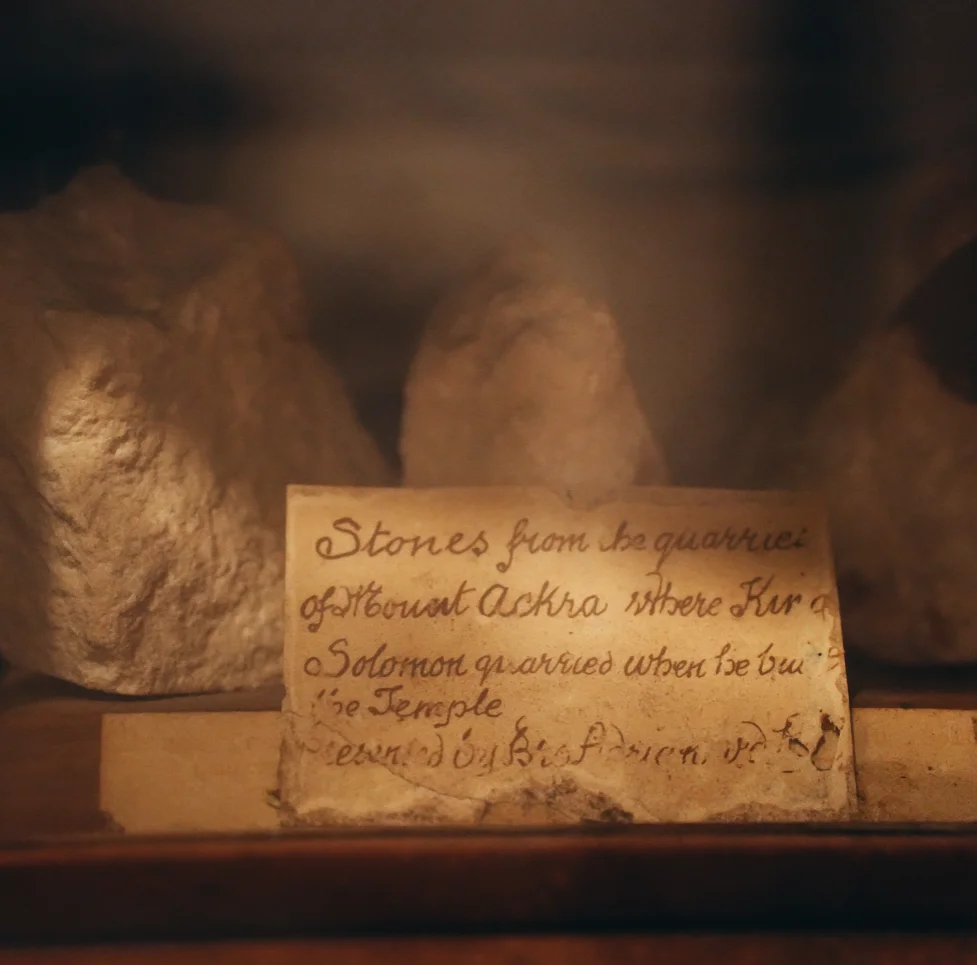 Stones from the quarries
of Mount Ackra where King
Solomon quarried when he bui
the Temple
Presented by Bro